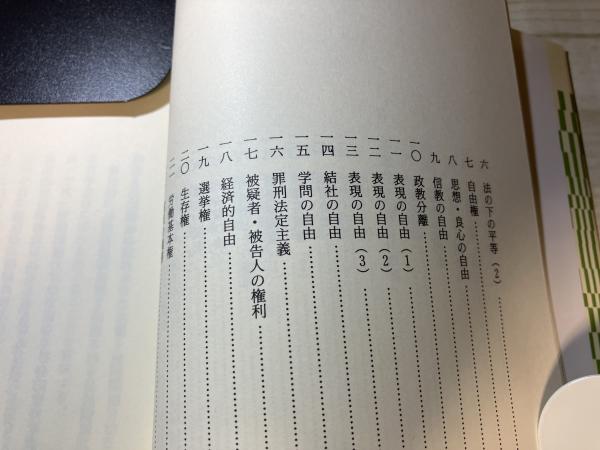 六 法の下の平等(2)
七 自由権
八 思想・良心の自由
九 信教の自由
一〇 政教分離
一一 表現の自由(1)
一二 表現の自由(2)
一三 表現の自由(3)
一四 結社の自由
一五 学問の自由
一六 罪刑法定主義
一七 被疑者・被告人の権利
一八 経済的自由
一九 選挙権
二〇 生存権
二一 労働基本権